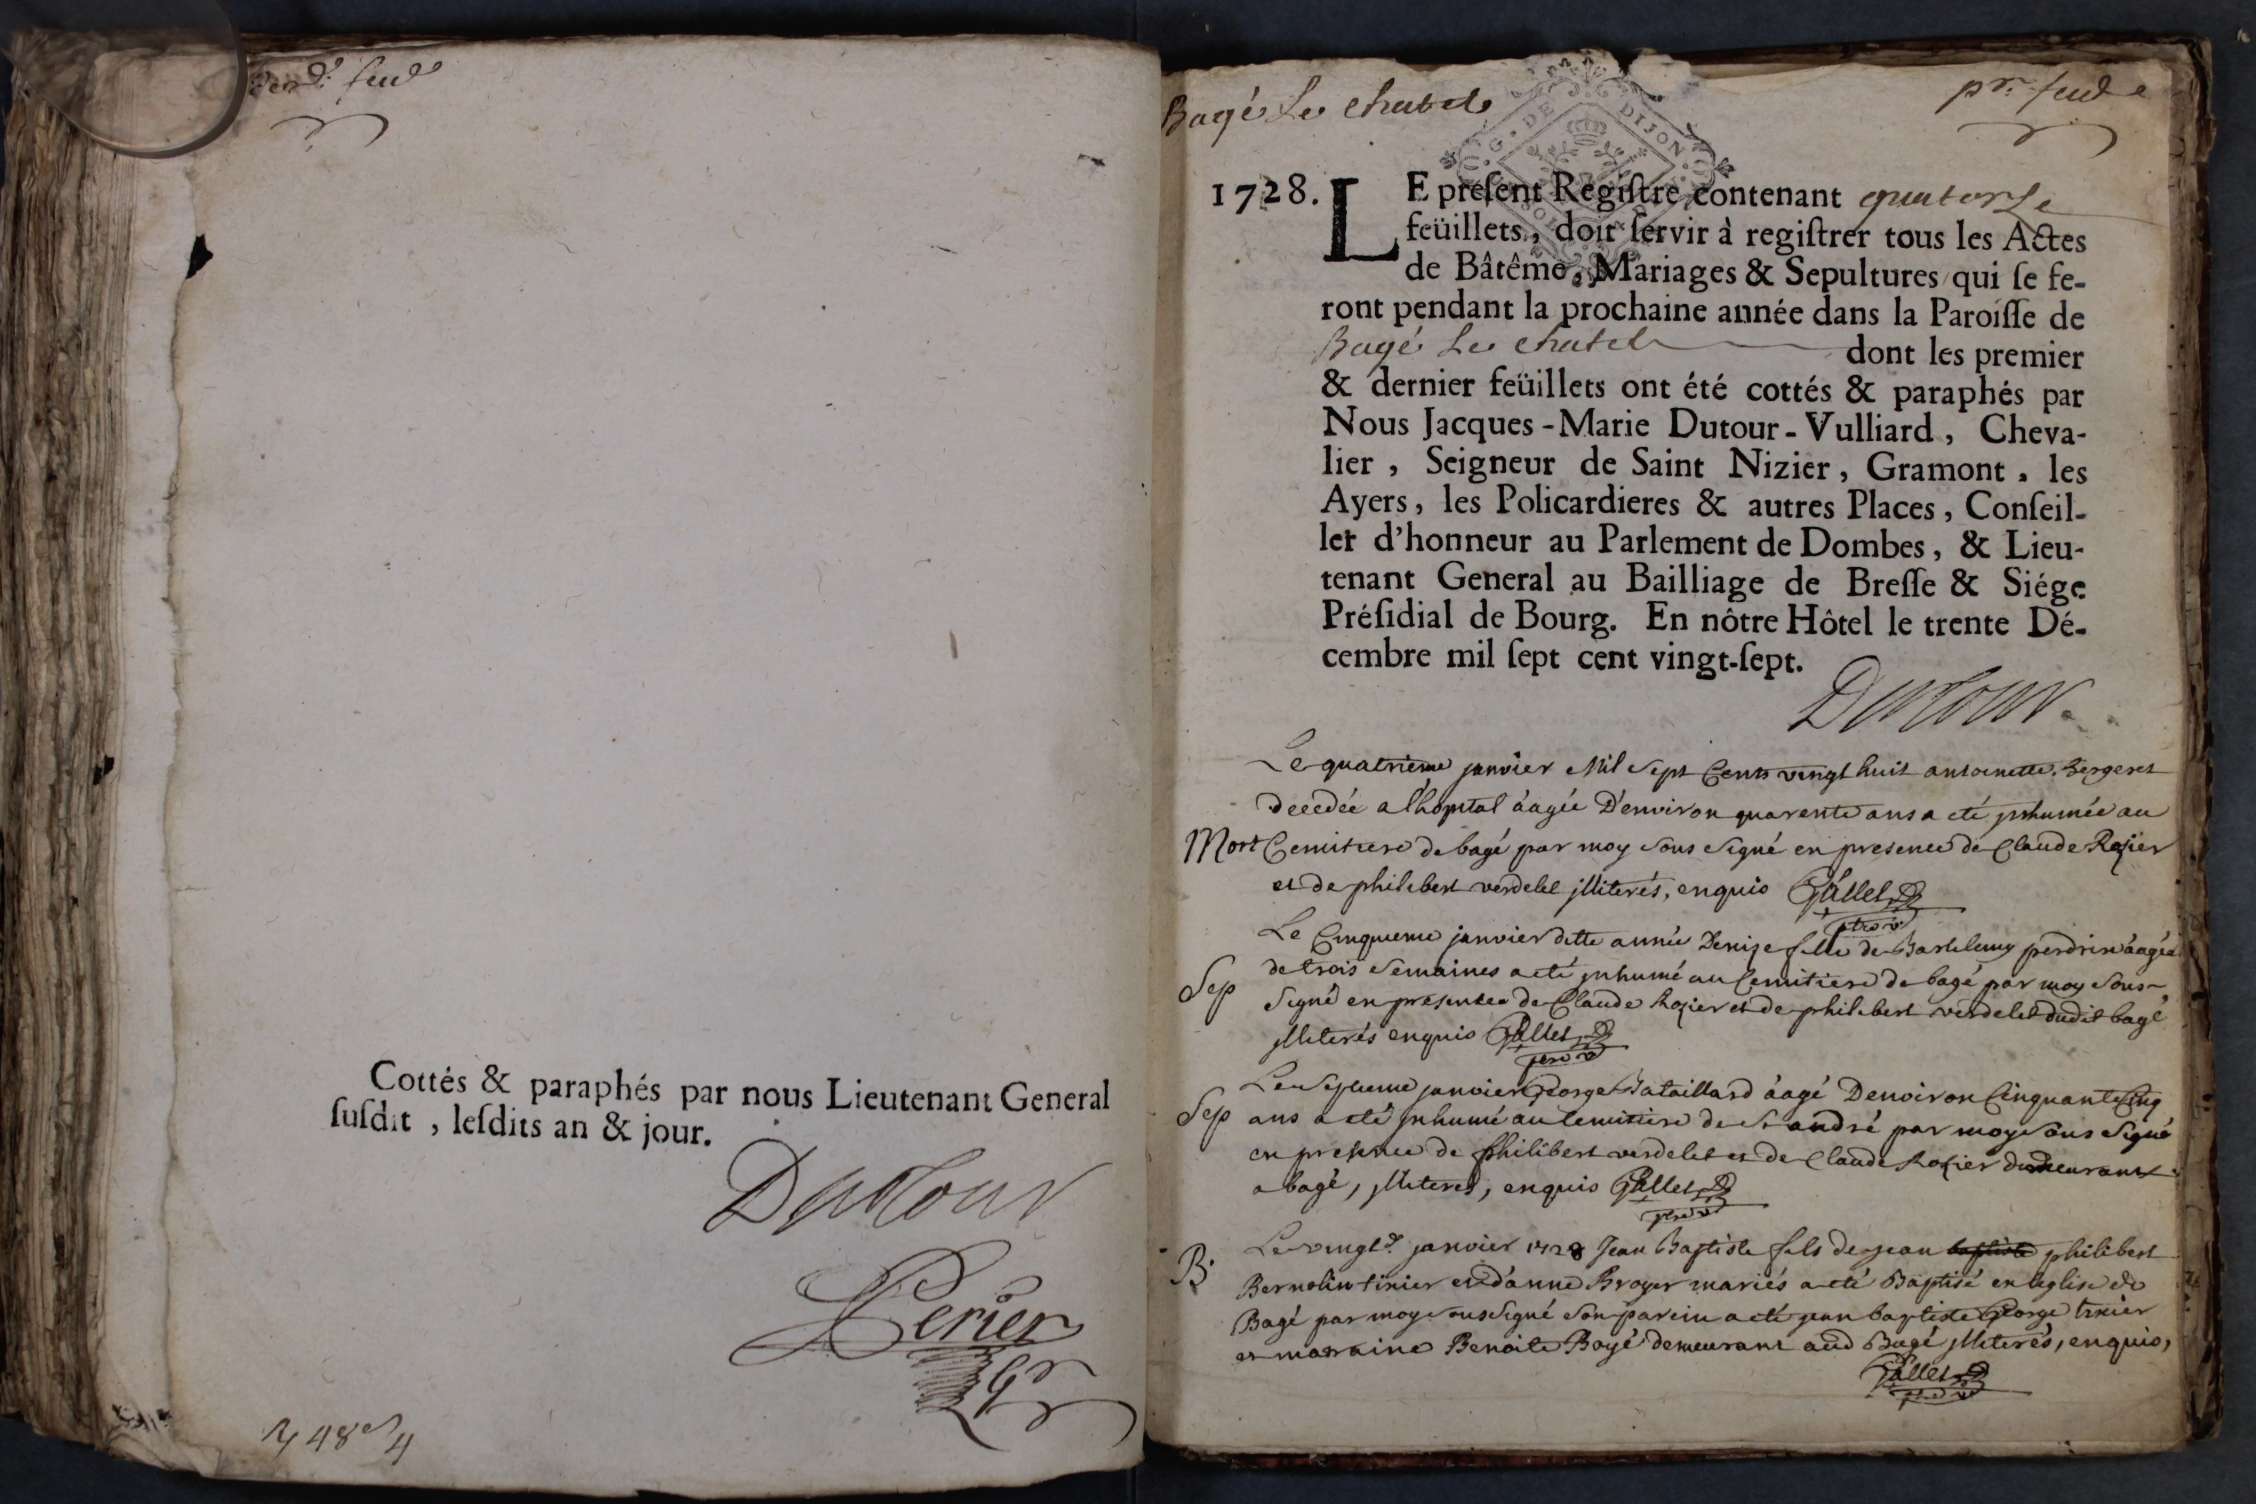 Cottés & paraphés par nous Lieutenant General
suſdit, leſdits an & jour.
Dutour
Perier
Bagé Le chatel
pr. feuil
G. DE DIJON
1728. LE preſent Regiſtre contenant quatorze
feüillets, doit ſervir à regiſtrer tous les Actes
de Bâtême, Mariages & Sepultures qui ſe fe-
ront pendant la prochaine année dans la Paroiſſe de
Bagé Le chatel dont les premier
& dernier feüillets ont été cottés & paraphés par
Nous Jacques-Marie Dutour-Vulliard, Cheva-
lier, Seigneur de Saint Nizier, Gramont, les
Ayers, les Policardieres & autres Places, Conſeil-
ler d'honneur au Parlement de Dombes, & Lieu-
tenant General au Bailliage de Breſſe & Siége
Préſidial de Bourg. En nôtre Hôtel le trente Dé-
cembre mil ſept cent vingt-ſept.
Dutour
Le quatrieme janvier Mil Sept Cents vingt huit antoinette Bergeret
decedée a lhopital âagée D'environ quarente ans a eté jnhumée au
Mort Cemitiere de bagé par moy Sous Signé en presence de Claude Rozier
et de philebert verdelet jlliterés, enquis Pallet
Le Cinquieme janvier ditte année Denize fille de Bartelemy perdrix âagée
Sep de trois Semaines a eté jnhumé au Cemitiere de bagé par moy Sous-
Signé en presence de Claude Rozier et de philebert verdelet dudit bagé
jlliterés enquis Pallet
Le Septieme janvier George Bataillard âagé Denviron Cinquante Cinq
Sep ans a eté jnhumé au Cemitiere de St andré par moy Sous Signé
en presence de philibert verdelet et de Claude Rozier demeurant
a bagé, jlliterés, enquis Pallet
Le vingt janvier 1728 Jean Baptiste fils de jean baptiste philibert
B. Bernolin tixier et d'anne Broyer mariés a eté Baptisé en leglise de
Bagé par moy sousSigné Son parein a eté jean baptiste George tixier
et marraine Benoite Boyé demeurant aud Bagé jlliterés, enquis,
Pallet